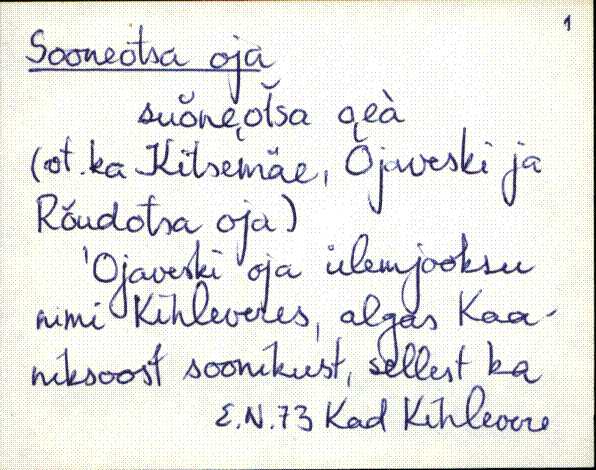 1
Sooneotsa oja
suŏne̮otsa o̮eà
(ot. ka Kitsemäe, Ojaveski ja
Rõudotsa oja)
'Ojaveski oja ülemjooksu
nimi Kihleveres, algas Kaa-
niksoost soonikust, sellest ka
E.N. 73 Kad Kihlevere